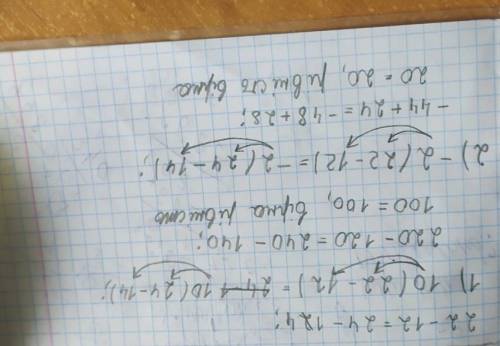 22 - 12 = 24 - 124;
1) 10(22 - 12) = 10(24 - 14);
220 - 120 = 240 - 140;
100 = 100, вірна рівність
2) - 2(22 - 12) = - 2(24 - 14);
- 44 + 24 = - 48 + 28;
20 = 20, рівність вірна